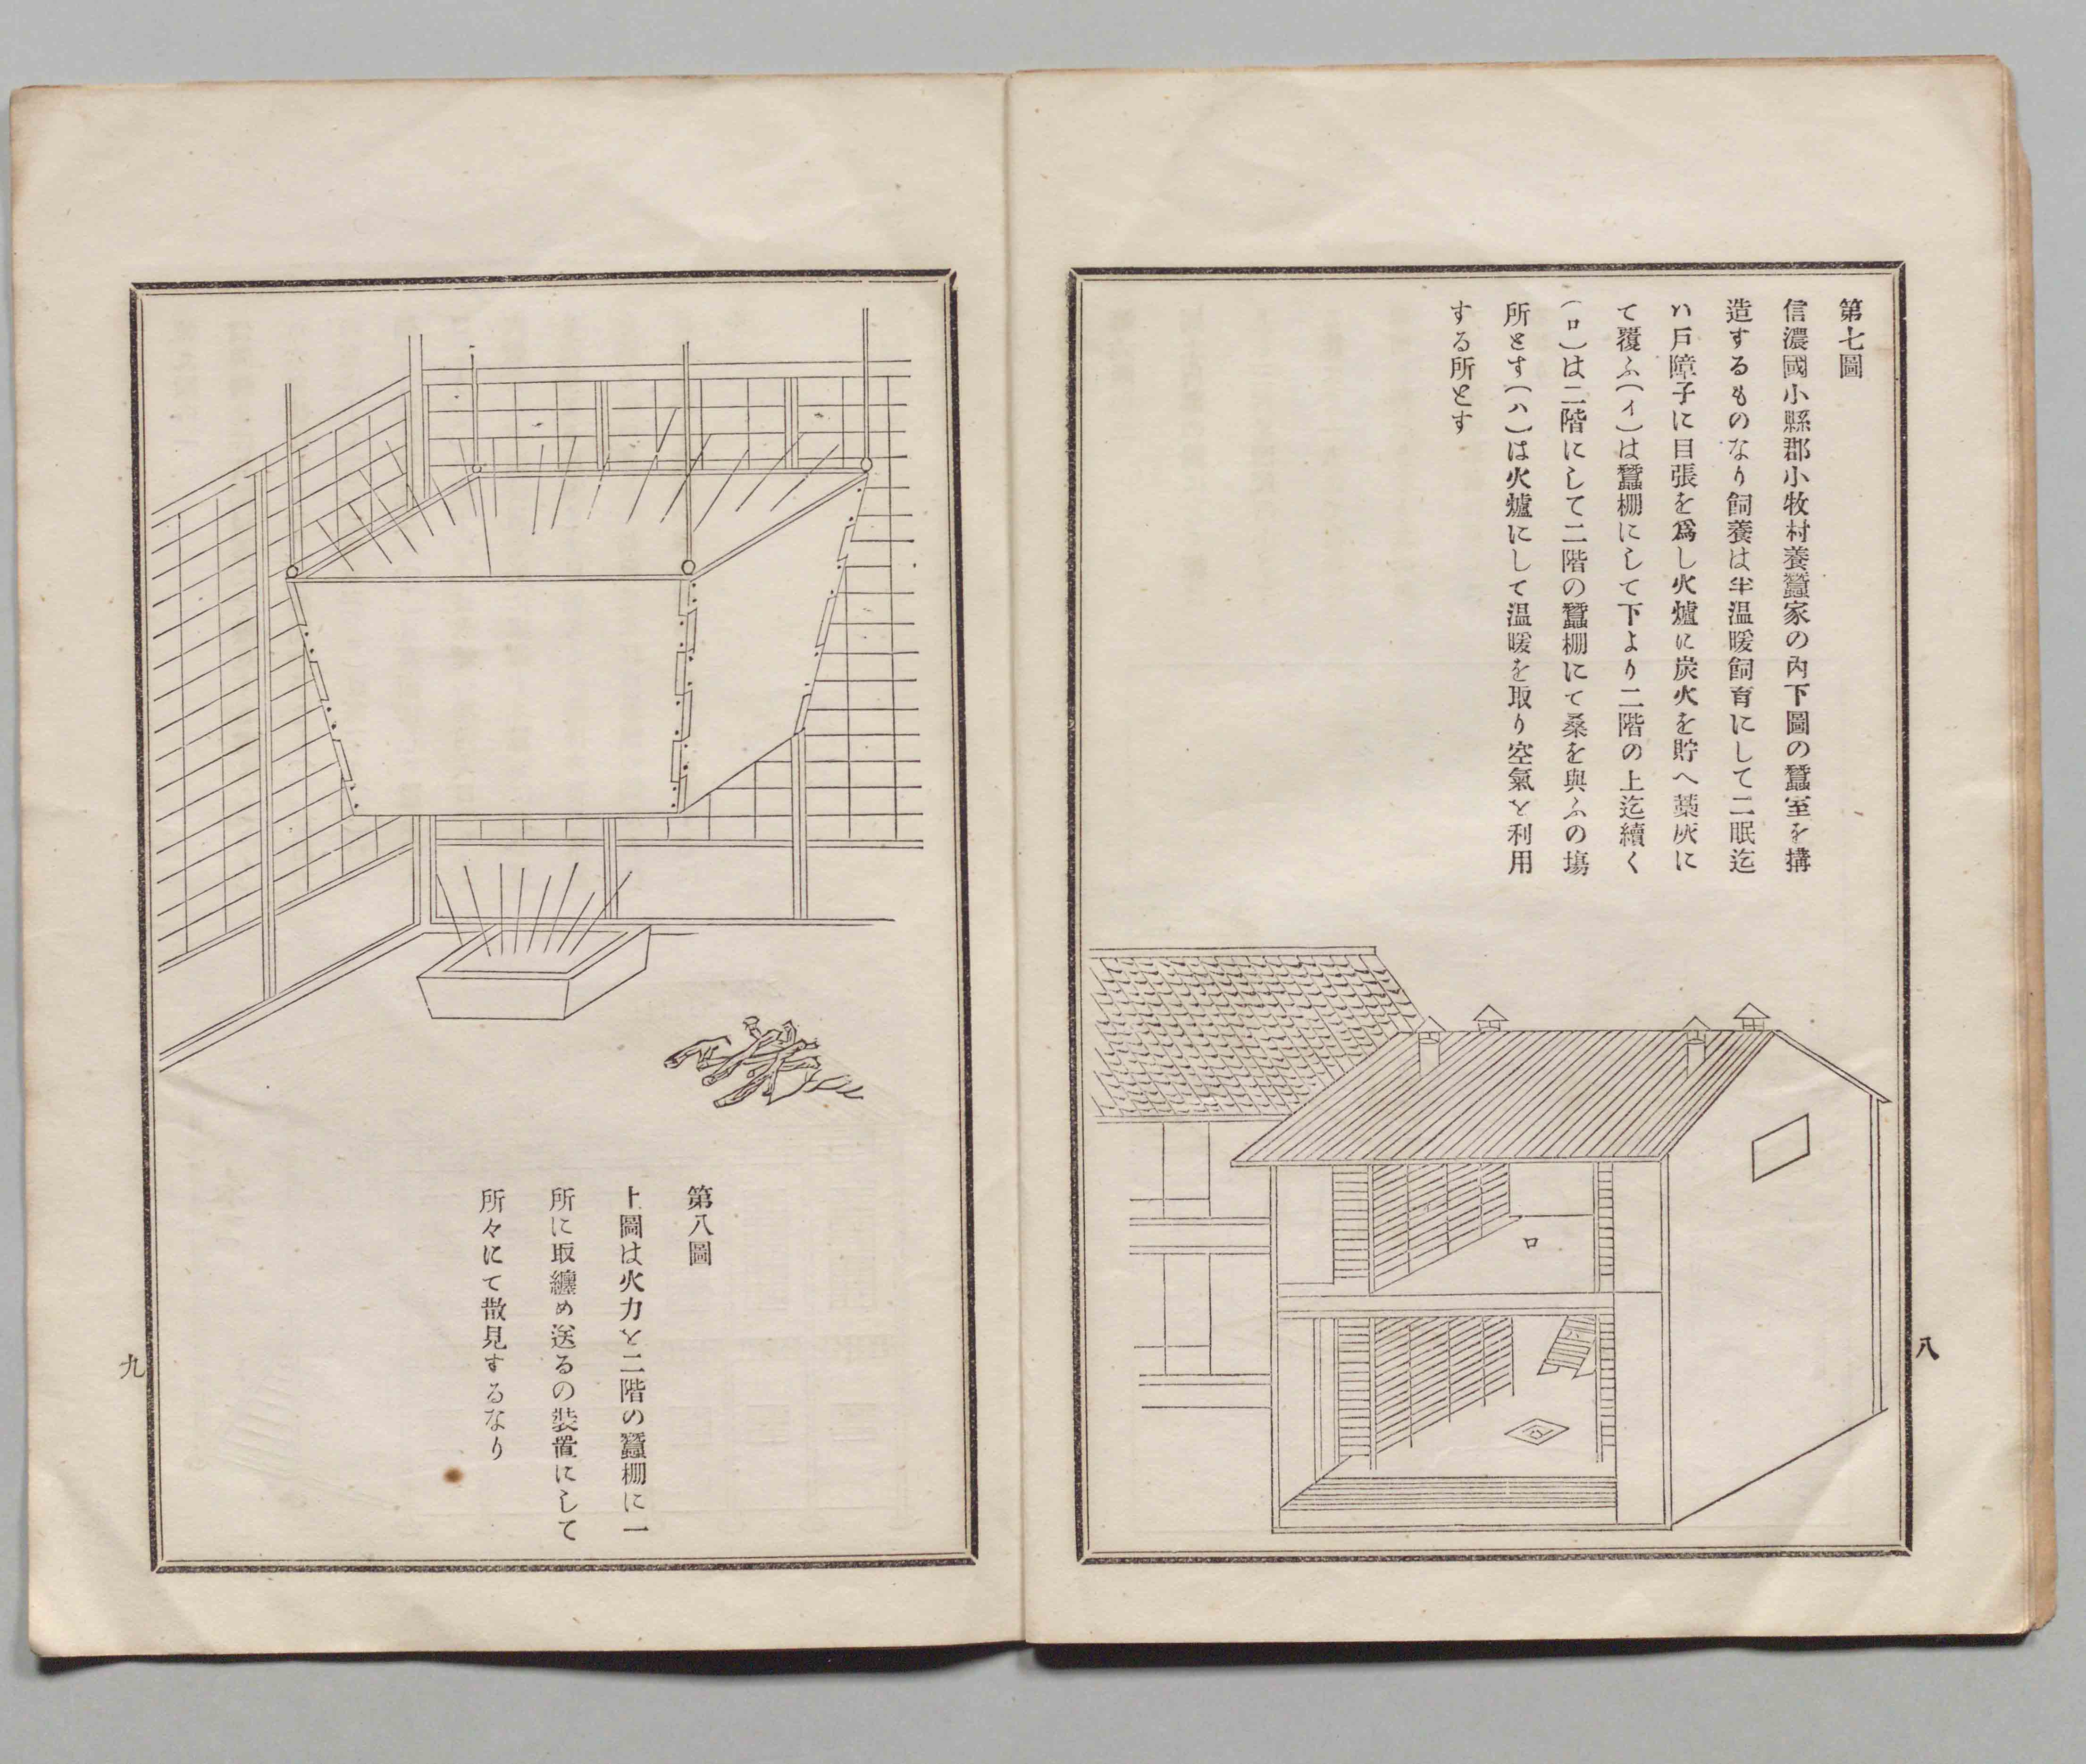 第七圖
信濃國小縣郡小牧村養蠶家の內下圖の蠶室を搆
造するものなり飼養は半温暖飼育にして二眠迄
ハ戸障子に目張を爲し火爐に炭火を貯へ藁灰に
て覆ふ(イ)は蠶棚にして下より二階の上迄續く
(ロ)は二階にして二階の蠶棚にて桑を與ふの塲
所とす(ハ)は火爐にして温暖を取り空氣を利用
する所とす
ロ
八
第八圖
上圖は火力を二階の蠶棚に一
所に取纏め送るの裝置にして
所々にて散見するなり
九